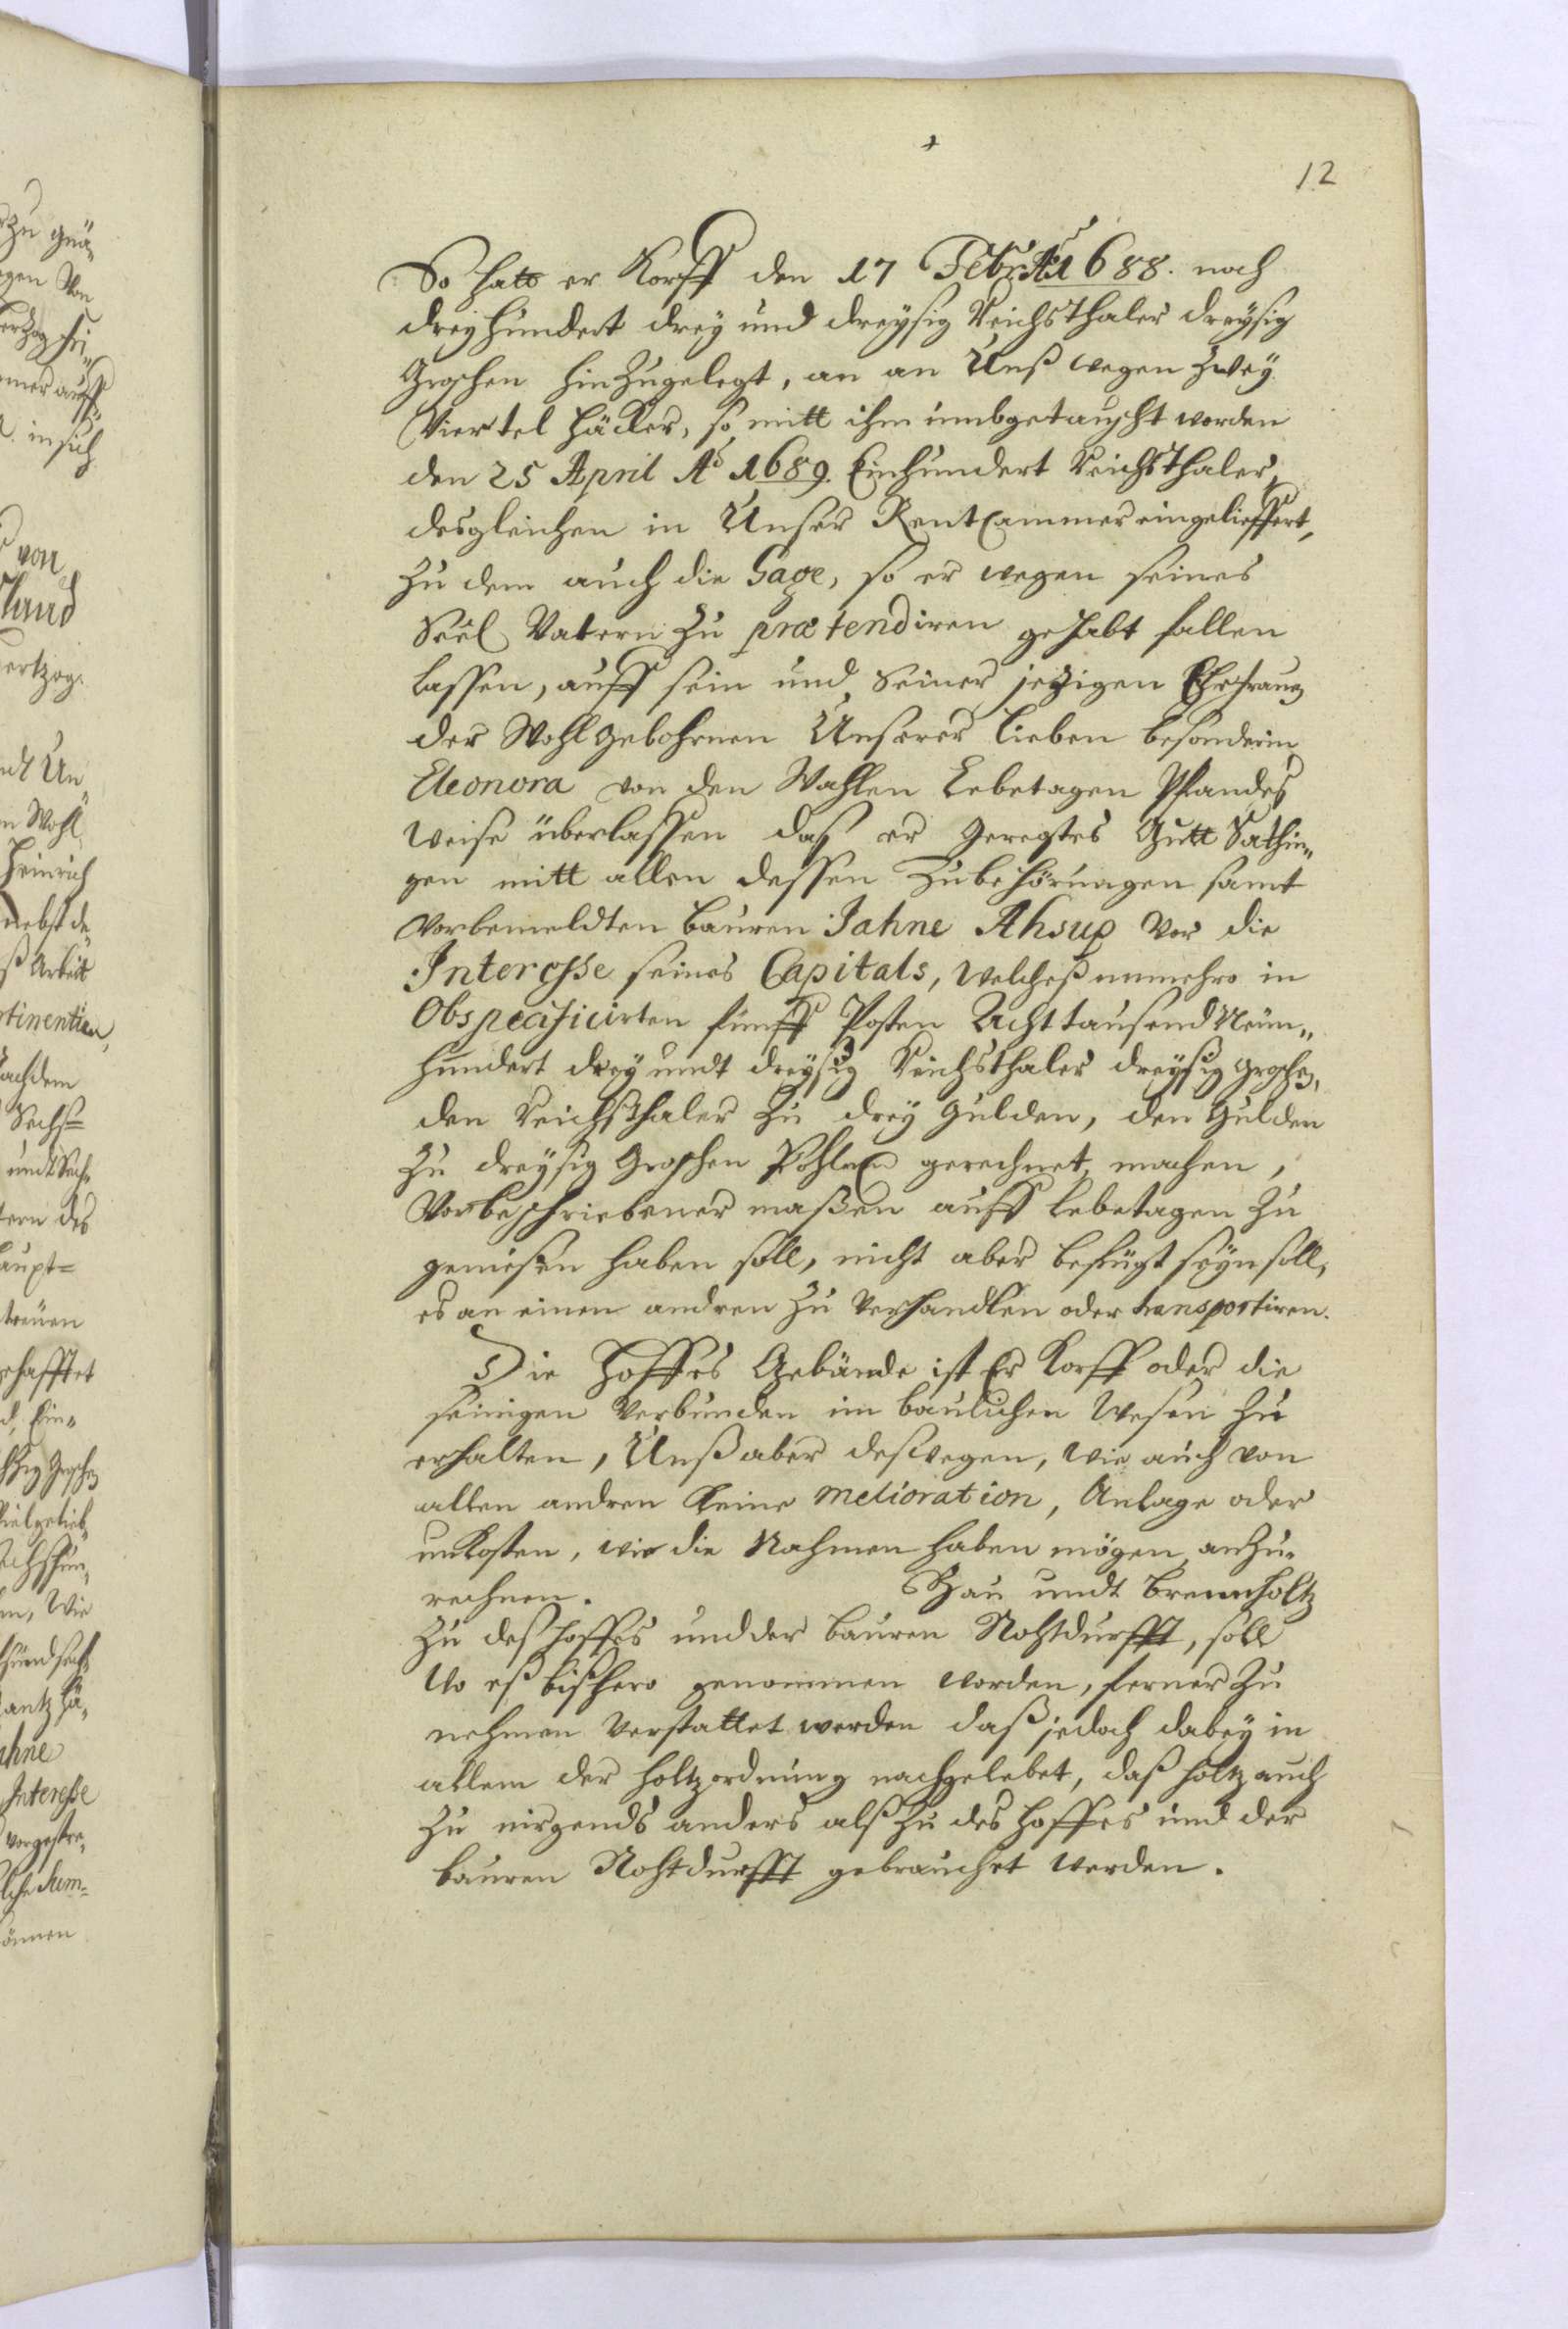 12
So hatt er Korff den 17 Febr: Aõ 1688. noch
dreyhundert drey und dreysig Reichsthaler dreysig
Groschen hinzugelegt, an an Unß wegen zwey
Viertel Häcker, so mitt ihm umbgetauscht worden
den 25 April Aõ 1689. Einhundert Reichsthaler,
desgleichen in Unser RentCammer eingelieffert,
zu dem auch die Gage, so er wegen seines
Seel Vatern zu prætendiren gehabt fallen
lassen, auff sein und seiner jezigen Ehefrauen
der Wohlgebohrnen Unserer lieben besonderin,
Eleonora von den Wahlen Lebetagen Pfandes
weise überlassen das er geregtes Gutt Sathin„
gen mitt allen dessen Zubehörungen samt
vorbemeldten bauren Jahne Ahsup vor die
Interesse seines Capitals, welcheß nunmehro in
Obspecificirten fünff Posten Achttausend Neun„
hundert drey undt dreysig Reichsthaler dreysig groschen,
den Reichsthaler zu drey Gulden, den Gulden
zu dreysig Groschen Pohlen gerechnet, machen,
Vorbeschriebener maßen auff lebetagen zu
geniesen haben soll, nicht aber befugt seyn soll,
es an einen andren zu verhandlen oder transportiren.
Die Hoffes Gebäude ist Er Korff oder die
seinigen verbunden im baulichen Wesen zu
erhalten, Unß aber deswegen, wie auch von
allen andren keine melioration, Anlage oder
unkosten, wie die Nahmen haben mögen, anzu„
rechnen. Bau undt brennholtz
zu deß hoffes und der bauren Nohtdurfft, soll
wo eß bißhero genommen worden, ferner zu
nehmen verstattet werden daß jedoch dabey in
allem der holtzordnung nachgelebet, daß holtz auch
zu nirgends anders alß zu des hoffes und der
bauren Nohtdurfft gebrauchet werden.